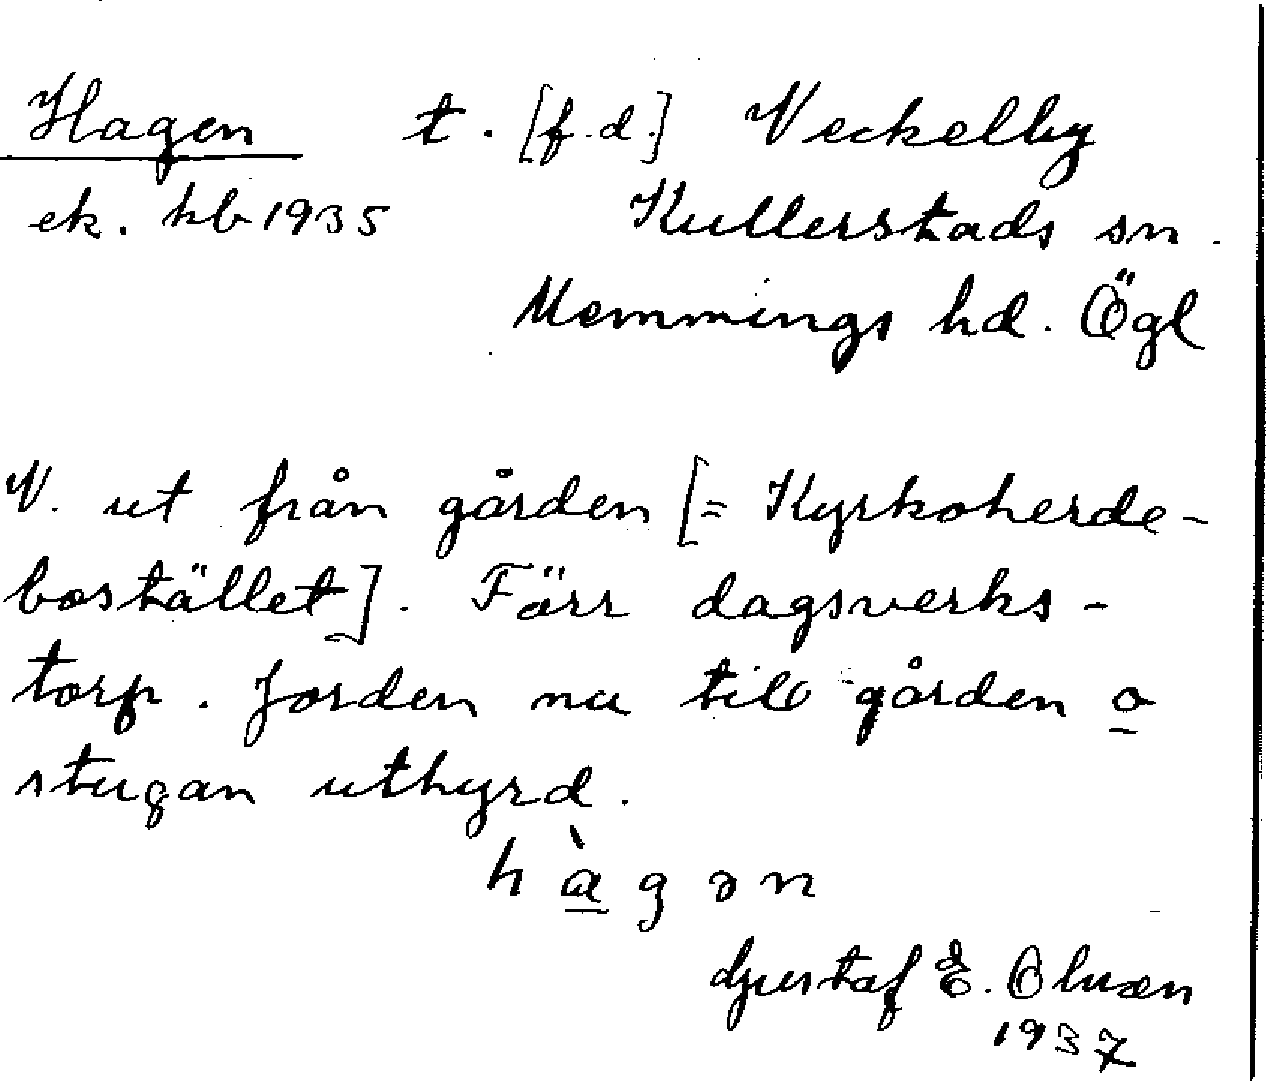 Hagen t. [f.d.] Veckelby
ek. hb 1935 Kullerstads sn.
Memmings hd. Ögl
V. ut från gården [= Kyrkoherde-
bostället]. Förr dagsverks-
torp. Jorden nu till gården o
stugan uthyrd.
hàgən
Gustaf E. Olsson
1937